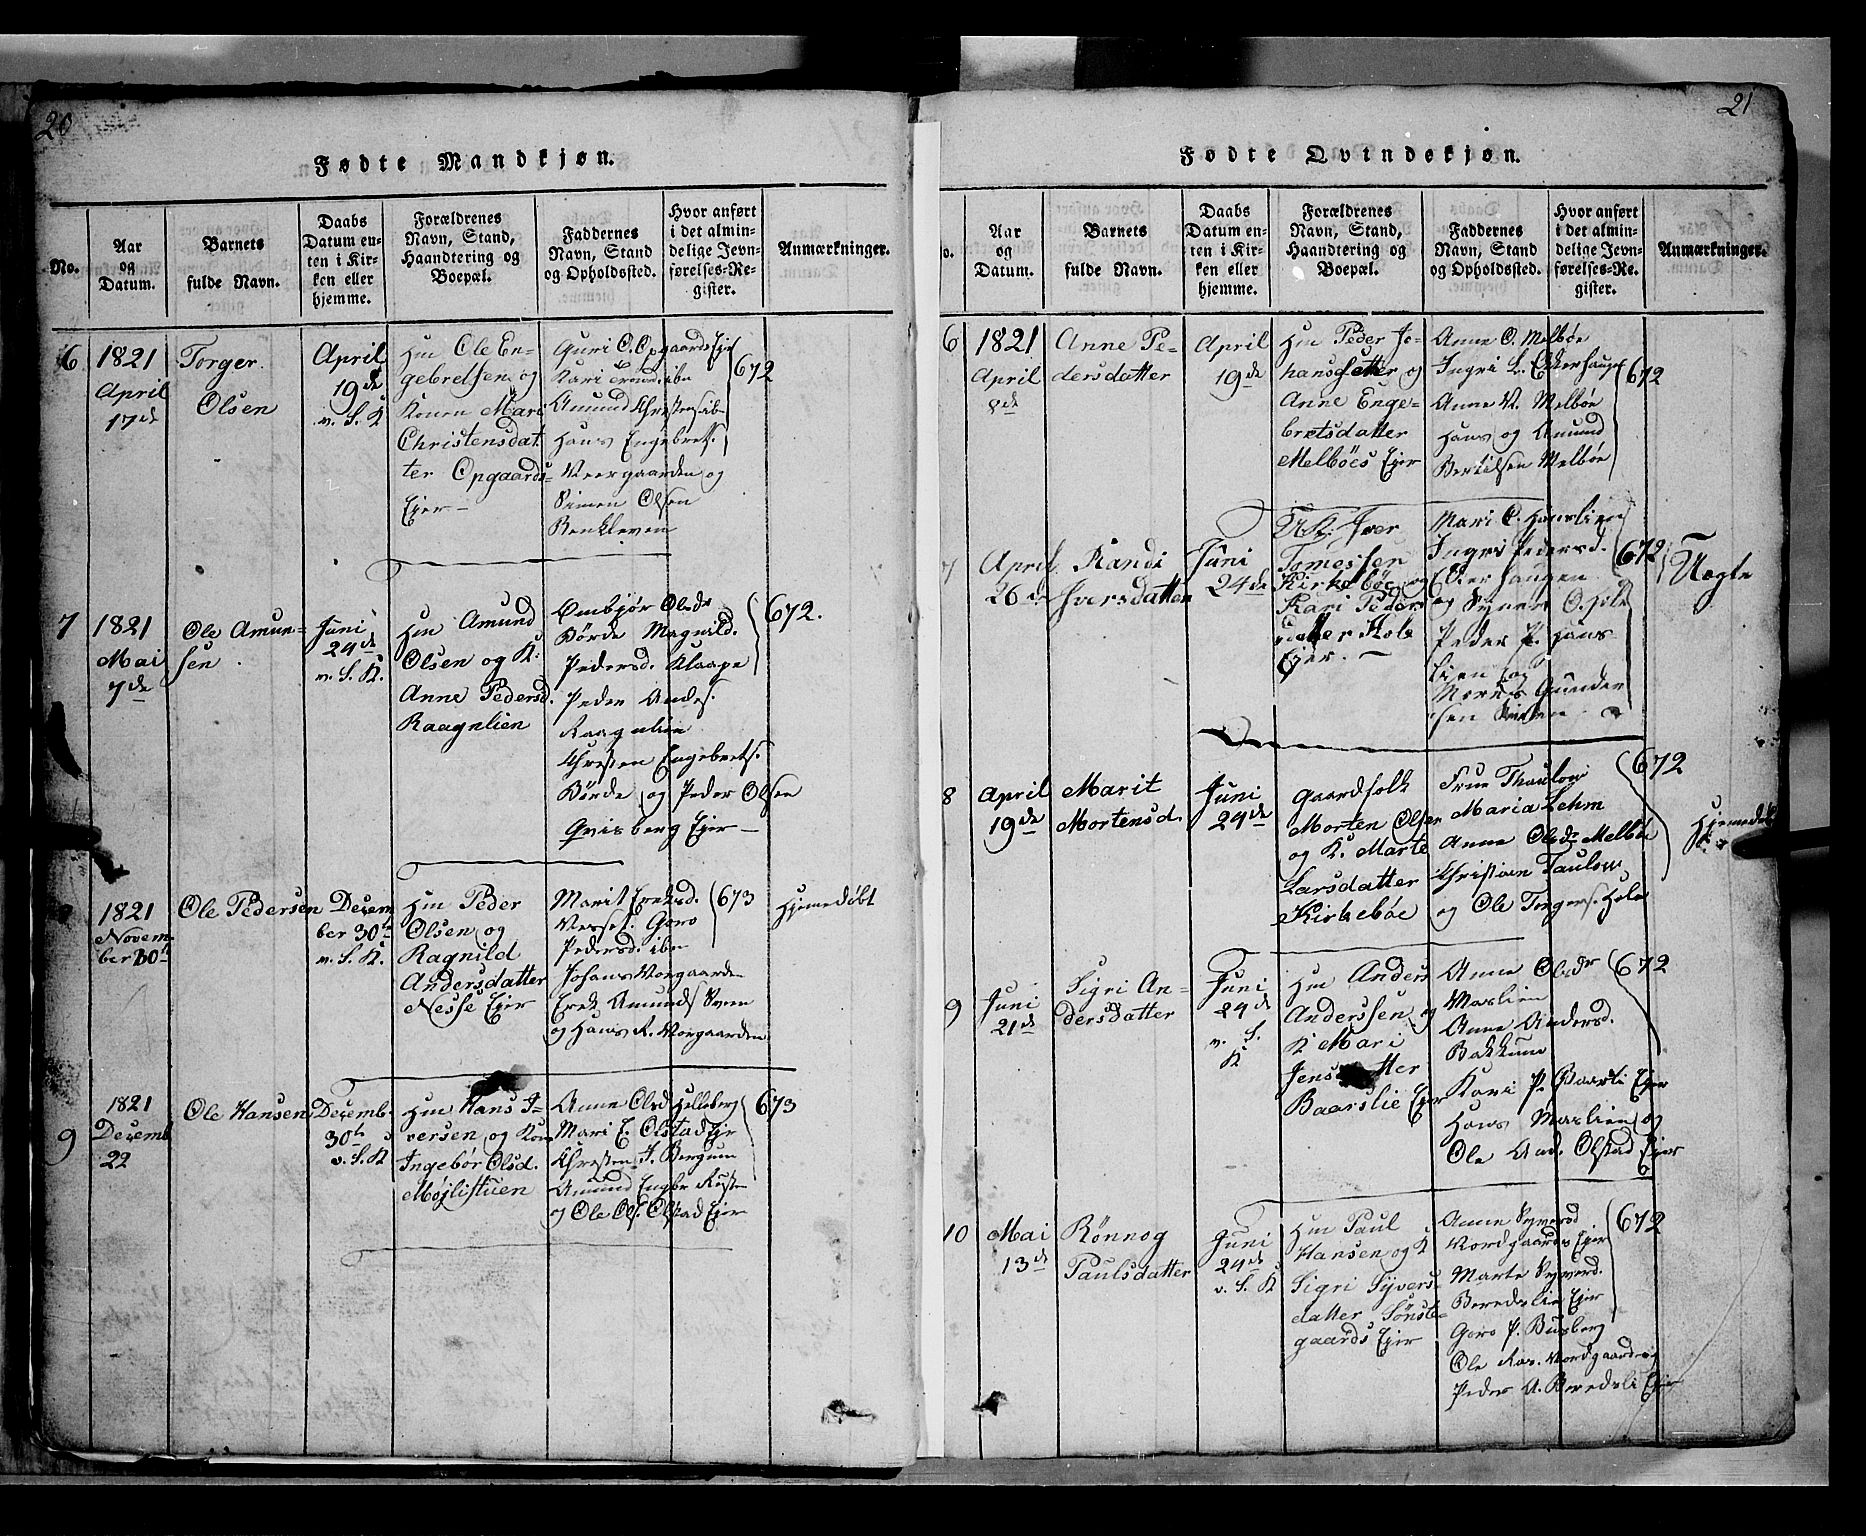 20
Fødte Mandkjøn.
No.
Aar og Datum.
Barnets fulde Navn.
Daabs Datum enten i Kirken eller hjemme.
Forældrenes Navn, Stand, Haandtering og Boepæl.
Faddernes Navn, Stand og Opholdssted.
Hvor anført i det almindelige Jevnførelses-Register.
Anmærkninger.
6
1821
April
17de
Torger
Olsen
April
19de
v. S. K
Hm Ole En-
gebretsen og
Konen Mari
Christensdat
ter Opgaards
Ejer
Guri O. Opgaards Ejer
Kari ibn
Amund Christens ib
Hans Engebrets.
Veergaarden og
Simen Olsen
Benkleven
672
7
1821
Mai
7de
Ole Amun-
sen
Juni
24de
v. S. K.
Hm Amund
Olsen og K.
Anne Pedersd.
Raagnlien
Embjør Olsdr
Børde Magnild.
Pedersd. Klaape
Peder Anders.
Raagnlien
Christen Engebrets.
Børde og Peder Olsen
Qvisberg Ejer
672.
1821
Novem-
ber
Ole Pedersen
Decem
ber 30te
v. S. K.
Hm Peder
Olsen og
Ragnild
Andersdatter
Nesse Ejer
Marit Ereksd.
Nesset. Goro
Pedersd. ibn
Johans Norgaarde
Erek Amunds Sveen
og Hans R. Norgaarden
673
Hjemedøbt
9
1821
Decemb
22
Ole Hansen
Decemb.
30te
v. S. K
Hm Hans I-
versen og Kone
Ingebør Olsd.
Møjlistuen
Anne Olsd Helleberg
Mari E. Olstad Ejer
Christen J. Bergum
Amund Engbr Ruste
og Ole Ols. Olstad Ejer
673
21
Fødte Qvindekjøn.
o.
Aar og Datum.
Barnets fulde Navn.
Daabs Datum enten i Kirken eller hjemme.
Forældrenes Navn, Stand, Haandtering og Boepæl.
Faddernes Navn, Stand og Opholdssted.
Hvor anført i det almindelige Jevnførelses-Register.
Anmærkninger.
6
1821
April
8de
Anne Pe-
dersdatter
April
19de
Hm Peder Jo-
hans og
Anne Enge-
bretsdatter
Melbøes Ejer
Anne O. Melbøe
Ingri L. Ekkerhauge
Anne V. Melbøe
Hans og Amund
Bertilsen Melbøe
672
7
April
26de
Randi
Iversdatter
Juni
24de
Iver
Tomessen
Kirkebøe og
Kari Peders
datter Hole
Ejer.
Mari O. Haugslien
Ingri Pedersd.
haugen
og Synev O. Hole
Peder P. Haus
lien og
Mons Gunder
sen
672
Uægte
8
April
19de
Marit
Mortensd.
Juni
24de
Gaardfolk
Morten Olsen
og K. Marte
Larsdatter
Kirkebøe
Frue Thaulow
Maria Lehm
Anne Olsdr Melbøe
Christian Taulow
og Ole Torgers. Hole
672
Hjemedøbt
9
Juni
21de
Sigri An-
dersdatter
Juni
24de
v. S.
K
Hm Anders
Anderssen og
K Mari
Jensdatter
Baarslie Ejer
Anne Olsdr
Maslien
Anne Andersd.
Bakkene
Kari P. Baarli Ejer
Hans Maslien og
Ole And. Olstad Ejer
672
10
Mai
13de
Rønnog
Paulsdatter
Juni
24de
v. S. K
Hm Paul
Hansen og K
Sigri Syvers
datter Sønste-
gaards Ejer
Anne Syversd
Nordgaards Ejer
Marte Syverd.
Beredslie Ejer
Goro P. Busberg
Ole Ras. Nordgaarden og
Peder A. Beredsli Ejer
672